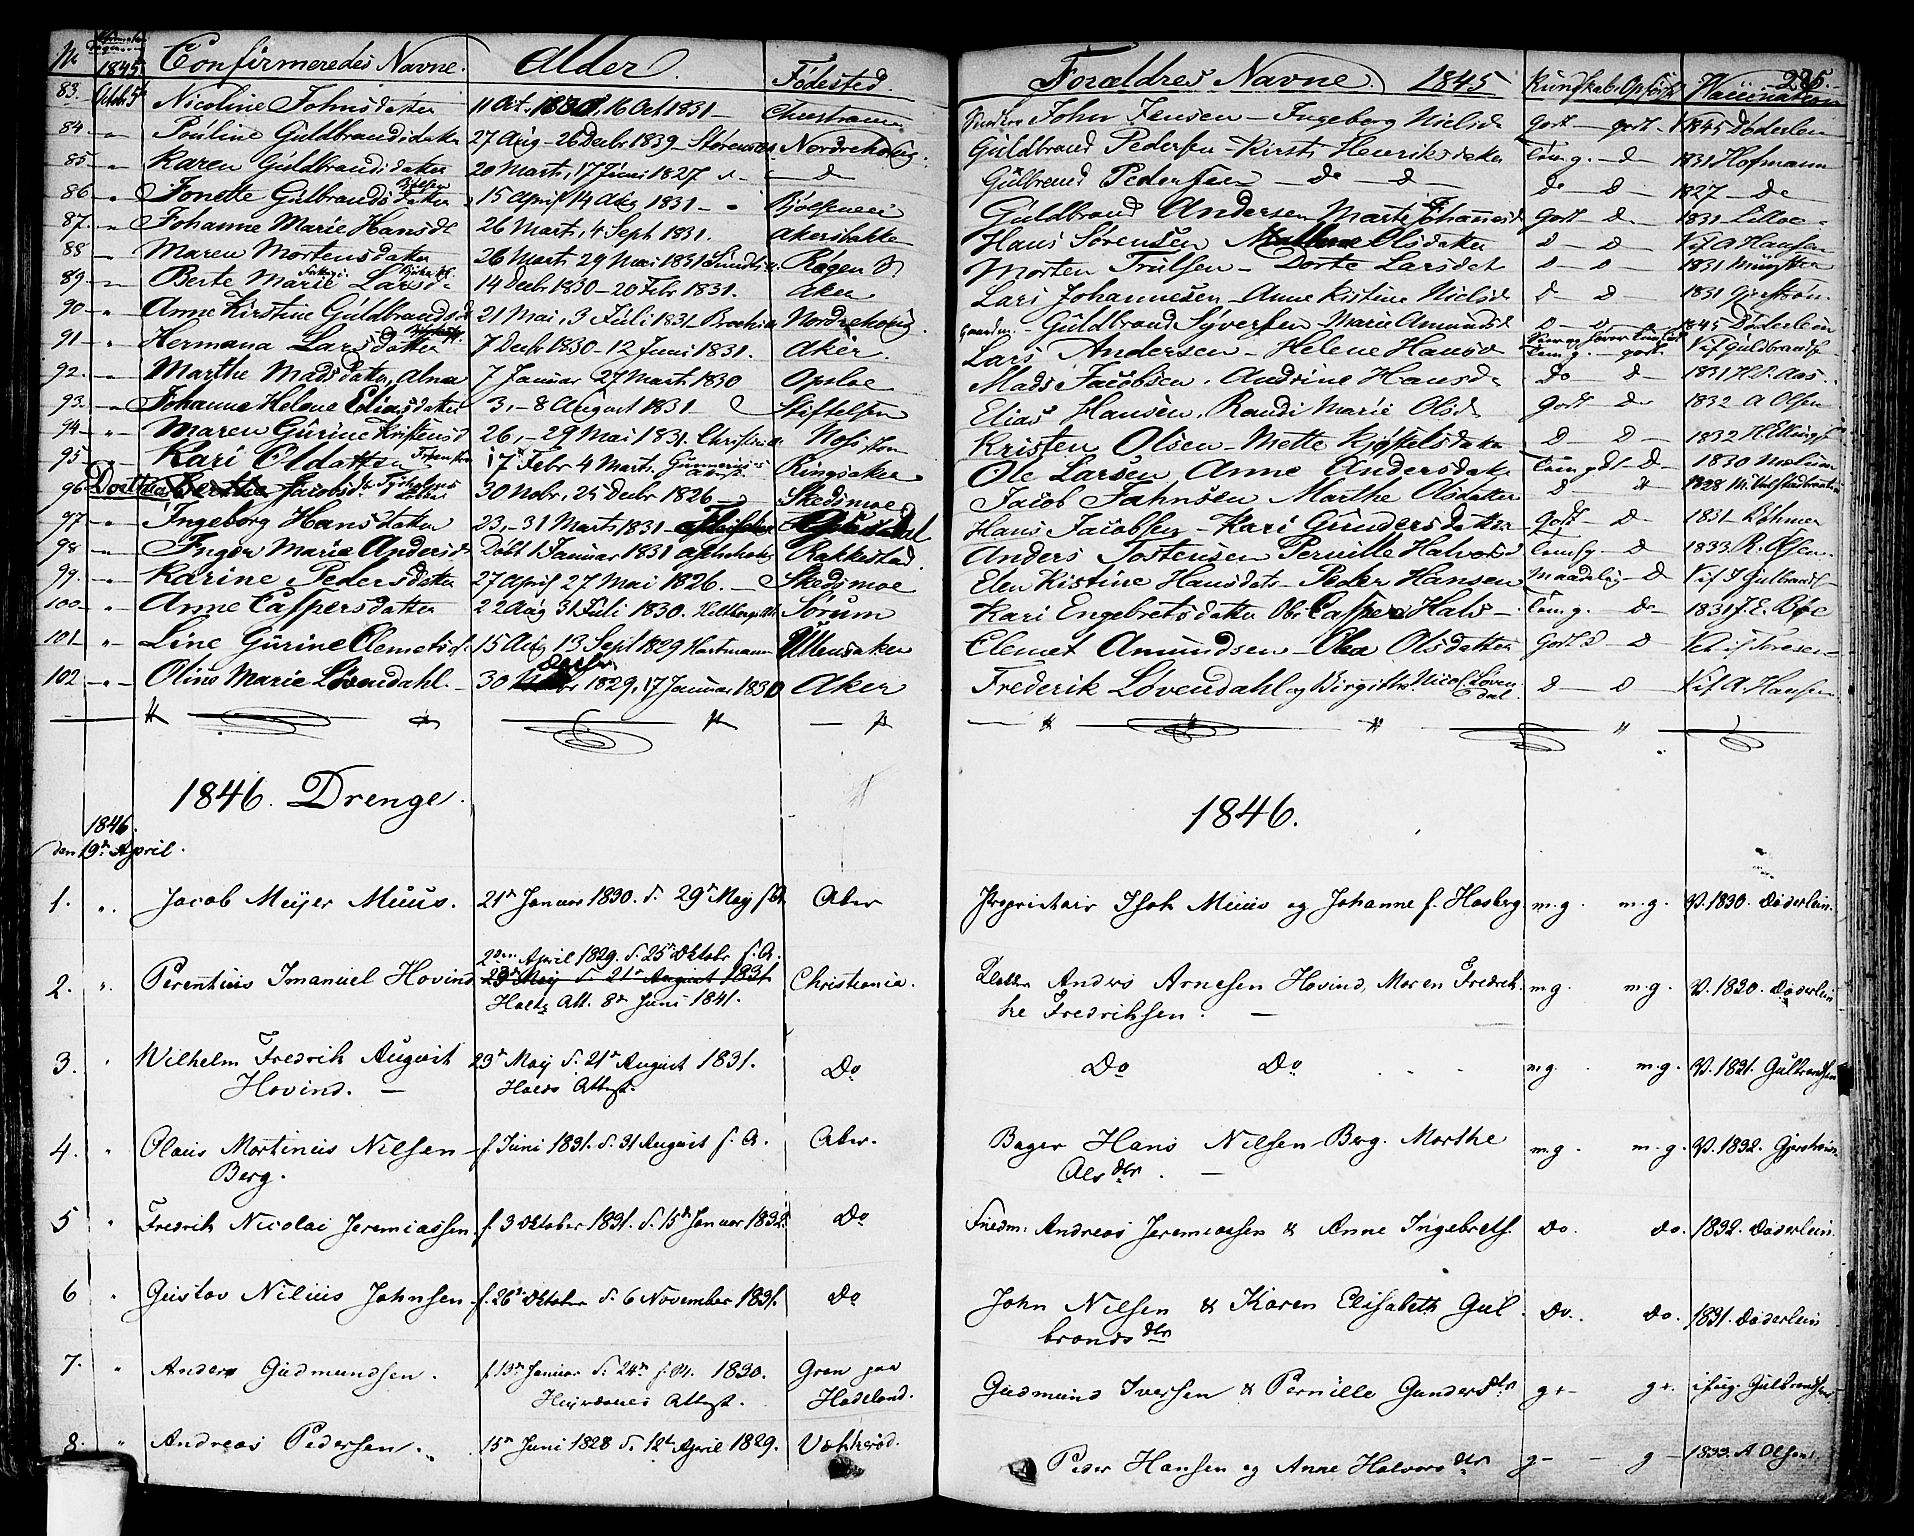 No 1845 Confirmeredes Navne. Alder. Fødested. Forældres Navne. 1845 Kundskab. Opførsel Vaccination 225.
83. Octbr 5 Nicoline Johnsdatter 11 Oct. 1830, 16 Oct 1831 — John Jensen — Ingeborg Nielsd godt — godt — 1845 Døderlein
84. — " Pouline Guldbrandsdatter 27 Aug — 26 Decbr 1839 — Guldbrand Pedersen — Kirsti Henriksdatter Tem. g. — D — 1831 Hofmann
85 — " Karen Guldbrandsdatter 20 Marts, 17 Juni 1827 — D Gulbrand Pedersen — Do — D — Do — D — 1827 — Do
86 — " Jonette Gulbrandsdatter 15 April 14 Aug 1831 — " Guldbrand Andersen Marte Johannesd Godt — D — 1831
87. — " Johanne Marie Hansd. 26 Marts, 4 Sept 1831. Akersbakken Hans Sørensen Olsdatter D — D — Vif A Hansen
88 — Maren Mortensdatter 26 Marts 29 Mai 1831 Røgen Morten Trulsen — Dorte Larsdat D — D — 1831 Münster
89 — " Berte Marie Larsd. 14 Decbr 1830 — 20 Febr 1831. Aker Lars Johannesen — Anne Kistine Nielsd D D — 1831
90 — " Anne Kirstine Guldbrandsd 21 Mai, 3 Juli 1831 — Guldbrand Syversen Marie Amundsd D — D — 1845 Døderlein
91 — " Hermana Larsdatter 7 Decbr 1830 — 12 Juni 1831. Aker. Lars Andersen — Helene Hansd Tem. g. — godt. Vif Guldbrands
92. — " Marthe Madsdatter, Alna 7 Januar 27 Marts 1830 Opsloe Mads Jacobsen. Andrine Hansd. Do D — 1831 H. P. Aas.
93. — " Johanne Helene Eliasdatter 3, — 8 August 1831 — Stiftelsen Elias Hansen. Randi Marie Olsd. Godt D — 1832 A Olsen
94 — " — Maren Gurine Kristensd 26, — 29 Mai 1831. Christian Kristen Olsen — Mette Kjøstelsdatter D — D — 1832 H. Ellings
95 — Kari Oldatter 17 Febr 4 Marts. Ringsaker Ole Larsen Anne Andersdat. Tem gdt — D — 1830
96 Dorthea Jacobsd. 30 Nobr, 25 Decbr 1826 — Skedsmoe Jacob Jahnsen Marthe Olsdatter D — " 1828
97 — " Ingeborg Hansdatter 23, — 31 Marts 1831 — Hans Jacobsen — Kari Gundersdatter godt — D — 1831 — Bøhmer
98 — " Inger Marie Andersd. Døbt 1 Januar 1831 Rakkestad. Anders Tostensen Pernille Halvorsd Temg — D — 1833. R. Olsen —
99. — " Karine Pedersdatter 27 April 27 Mai 1826. — Skedsmoe Elen Kistine Hansdatr — Peder Hansen Maadelig — D Vif J Gulbrands
100 — " Anne Caspersdatter 22 Aug 31 Juli 1830. Sørum Kari Engebretsdatter Casper Hals — Tem. g. — Do — 1831 J. E. Bøe
101 — " — Line Gurine Clemetsd. 15 Aug 13 Sept 1829 Hartmann Ullensaker Clemet Amundsen — Olea Olsdatter Godt D — D —
102 — " — Oline Marie Løvendahl. — 30 Decbr 1829, 17 Januar 1830 Aker Frederik Løvendahl og Birgithe Nicol. Løvendal. D — D — Vif A. Hansen
1846. Drenge. 1846.
1846.
den 19de April.
1. ". Jacob Meyer Muus. 21de Januar 1830. d. 29de May s. A. Aker Proprietair Isak Muus og Johanne f. Hasberg m.g. m.g. V. 1830. Døderlein.
2den April 1829. d. 25de Oktobr s. A.
2. ". Perentius Imanuel Hovind 23de May d. 21de August 1831. Christiania. Anders Arnesen Hovind, Maren Fredrik- m.g. m.g. V. 1830. Døderlein
Holts Att. 8de Juni 1841. ke Fredriksen. —
3. " Wilhelm Fredrik August 23de May d. 21de August 1831. Do Do Do m.g. m.g. V. 1831. Gulbrandsen
Hovind. — Holds Attest.
4. " Olaus Martinius Nilsen f. Juni 1831. d. 31 August s. A. Aker. Bager Hans Nilsen Berg. Marthe m.g. m.g. V. 1832.
Berg. Olsdtr. —
5 " Fredrik Nicolai Jeremiassen f. 3 Oktober 1831. d. 15de Januar 1832. Do Andreas Jeremiassen & Anne Ingebrets. Do. Do. 1832. Døderlein.
6 " Gustav Nilius Johnsen f. 26de Oktober d. 6 November 1831. Do John Nilsen & Karen Elisabeth Gul- Do. Do. 1831. Døderlein
brandsdtr
7. " Anders Gudmundsen. f. 13de Januar d. 24de s. M. 1830. Gran paa Gudmund Iversen & Pernille Gundersdtr g+ g+. Gulbrandsen
Attest. Hadeland.
8. " Andreas Pedersen. 15de Juni 1828 d. 12te April 1829. Vækkerød. Peder Hansen og Anne Halvorsdtr g — g — 1833. A Olsen.